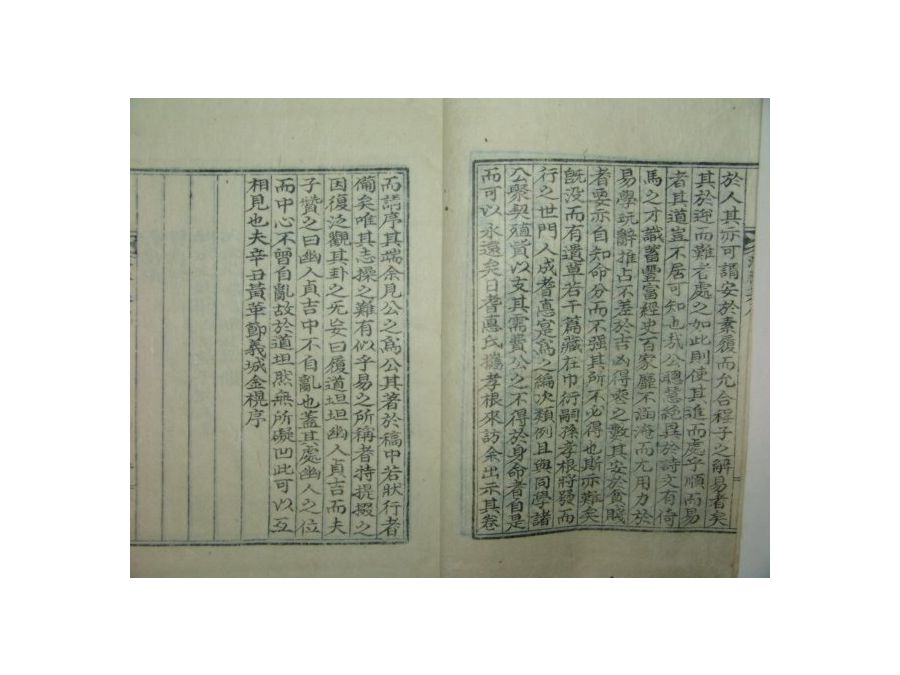 於人其亦可謂安於素履而允合程子之解易者矣
其於迎而難者處之如此則使其進而處乎順而易
者其道豈不居可知也哉公聰慧絶異於詩文有倚
馬之才識蓄豐富經史百家靡不涵淹而尤用力於
易學玩辭推占不差於吉凶得喪之數其安於貧賤
者要亦自知命分而不强其所不必得也斯亦難矣
旣没而有遺草若干篇藏在巾衍嗣孫孝根將發而
行之世門人成耆悳寔爲之編次類例且與同學諸
公聚契殖貲以支其需費公之不得於身命者自是
而可以永遠矣日耆悳氏攜孝根來訪余出示其卷
而請序其端余見公之爲公其著於稿中若狀行者
備矣唯其志操之難有似乎易之所稱者持提掇之
因復泛觀其卦之无妄曰履道坦坦幽人貞吉而夫
子贊之曰幽人貞吉中不自亂也蓋其處幽人之位
而中心不曾自亂故於道坦然無所礙凹此可以互
相見也夫辛丑黃華節義城金榥序